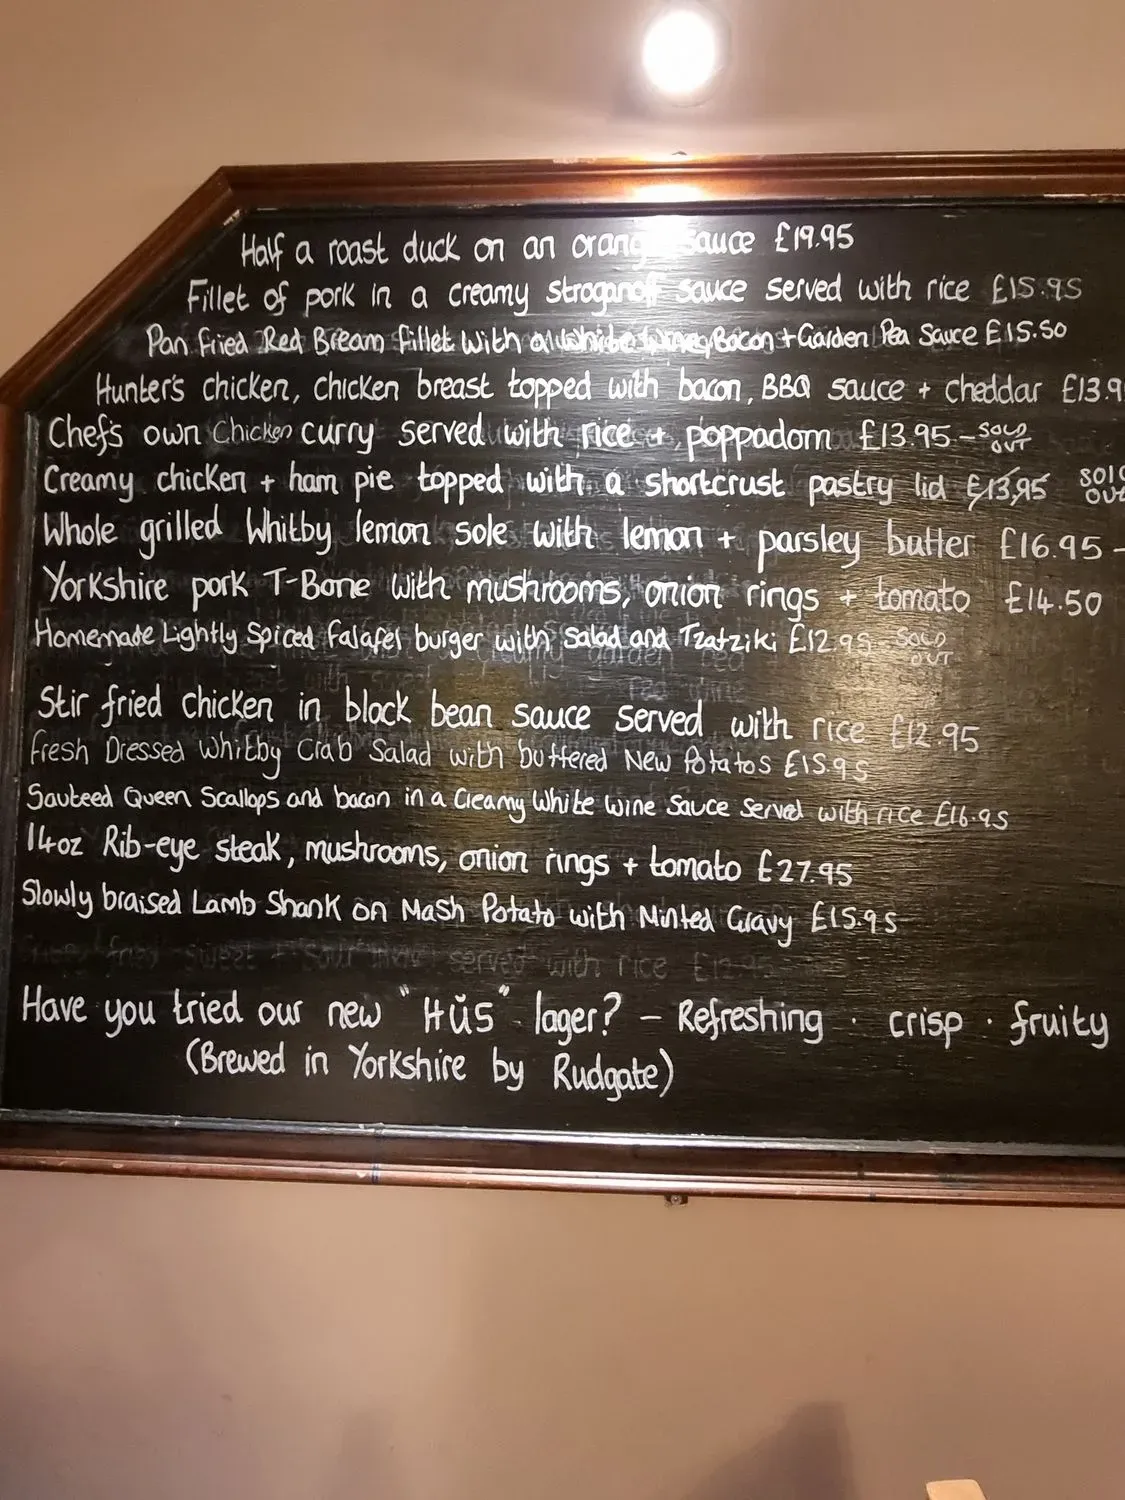 Half a roast duck on an orange sauce £19.95
Fillet of pork in a creamy stroganoff sauce served with rice £15.95
Pan Fried Red Bream fillet with a White Wine, Bacon + Garden Pea Sauce £15.50
Hunter's chicken, chicken breast topped with bacon, BBQ sauce + cheddar £13.9
Chef's own Chicken curry served with rice + poppadom £13.95 - SOLD OUT
Creamy chicken + ham pie topped with a shortcrust pastry lid £13.95 SOLD OUT
Whole grilled Whitby lemon sole with lemon + parsley butter £16.95 -
Yorkshire pork T-Bone with mushrooms, onion rings + tomato £14.50
Homemade Lightly Spiced Falafel burger with Salad and Tzatziki £12.95 - SOLD OUT
Stir fried chicken in black bean sauce served with rice £12.95
Fresh Dressed Whitby Crab Salad with buttered New Potatos £15.95
Sauteed Queen Scallops and bacon in a Creamy White wine Sauce Served with rice £16.95
14oz Rib-eye steak, mushrooms, onion rings + tomato £27.95
Slowly braised Lamb Shank on Mash Potato with Minted Gravy £15.95
fried sweet + sour served with rice £12.95
Have you tried our new "HŭS" lager? - Refreshing · crisp · fruity
(Brewed in Yorkshire by Rudgate)